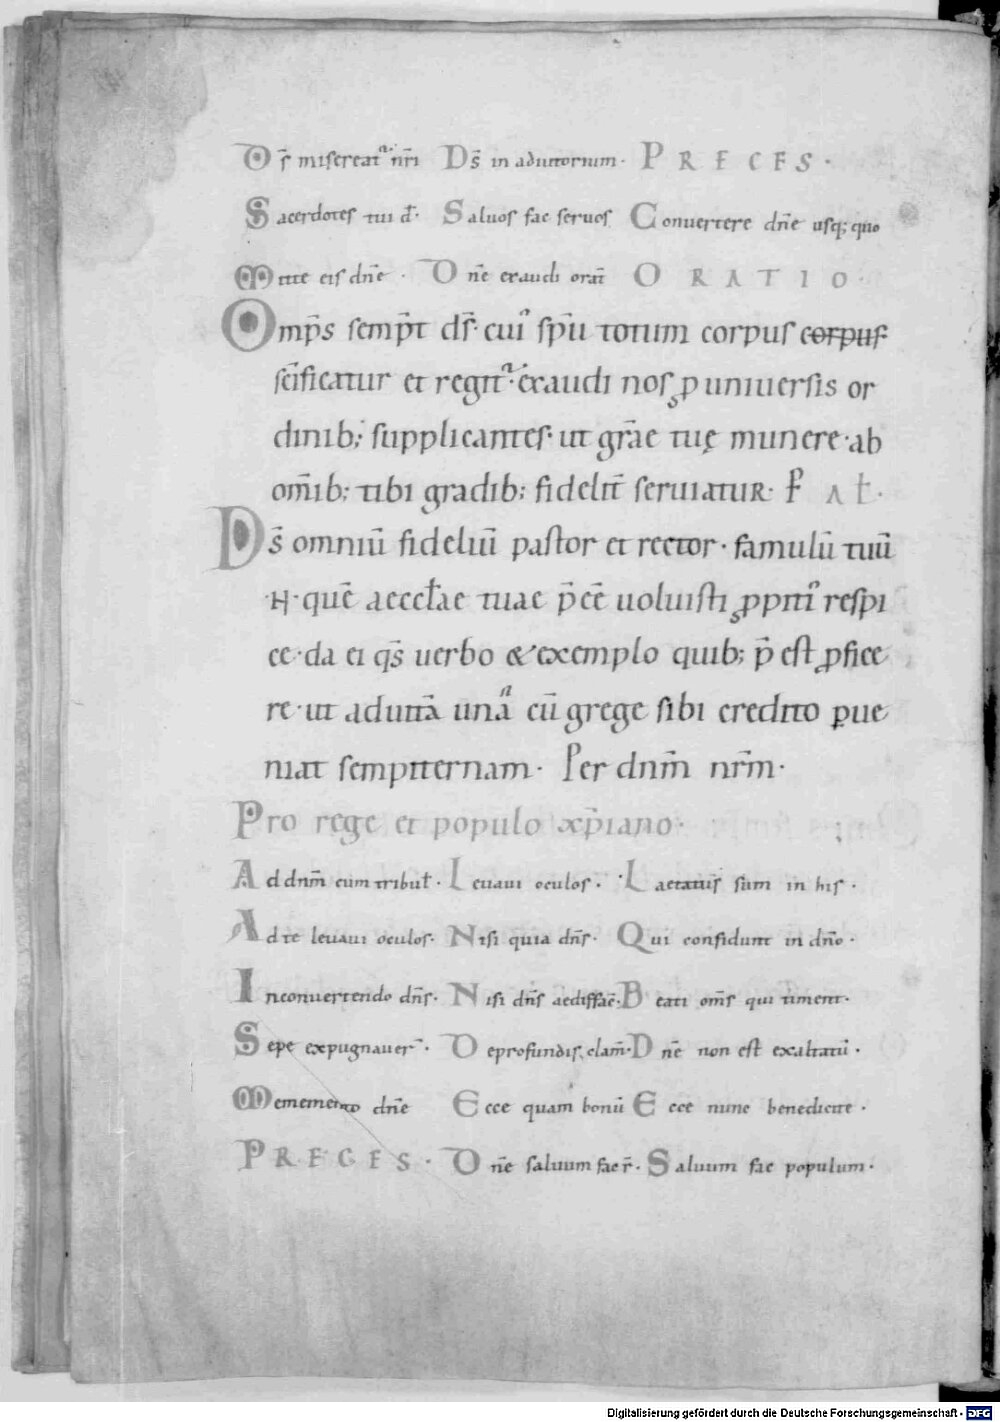 Ds̄ misereat᷑ nr̄i Ds̄ in adiutorium· PRECES·
Sacerdotes tui d̄· Saluos fac seruos Conuertere dn̄e usq; quo
Mitte eis dn̄e · Dn̄e exaudi orat̄ ORATIO·
Omp̄s semp̄t ds̄· cui᾽ sp̄u totum corpus corpus
sc̄ificatur et regit᷑· exaudi nos ꝓ uniuersis or
dinib; supplicantes· ut gr̄ae tuę munere· ab
om̄ib; tibi gradib; fidelit̄ seruiatur· P̄ AL̄·
Ds̄ omniū fideliū pastor et rector· famulū tuū
·N· quē aeccl̄ae tuae p̄eē uoluisti ꝓpiti᾽ respi
ce· da ei qs̄ uerbo & exemplo quib; p̄est ꝓfice
re· ut ad uitā unā cū grege sibi credito ꝑue
niat sempiternam· Per dnm̄ nr̄m·
Pro rege et populo xp̄iano·
Ad dnm̄ cum tribul̄· Leuaui oculos· Laetatus sum in his·
Ad te leuaui oculos· Nisi quia dn̄s· Qui confidunt in dn̄o·
In conuertendo dn̄s· Nisi dn̄s aediffac̄· Beati om̄s qui timent·
Sepe expugnauer̄· De profundis clam̄· Dn̄e non est exaltatū·
Mememento dn̄e Ecce quam bonū Ecce nunc benedicite·
PRECES· Dn̄e saluum fac r̄· Saluum fac populum·
Digitalisierung gefördert durch die Deutsche Forschungsgemeinschaft - DFG